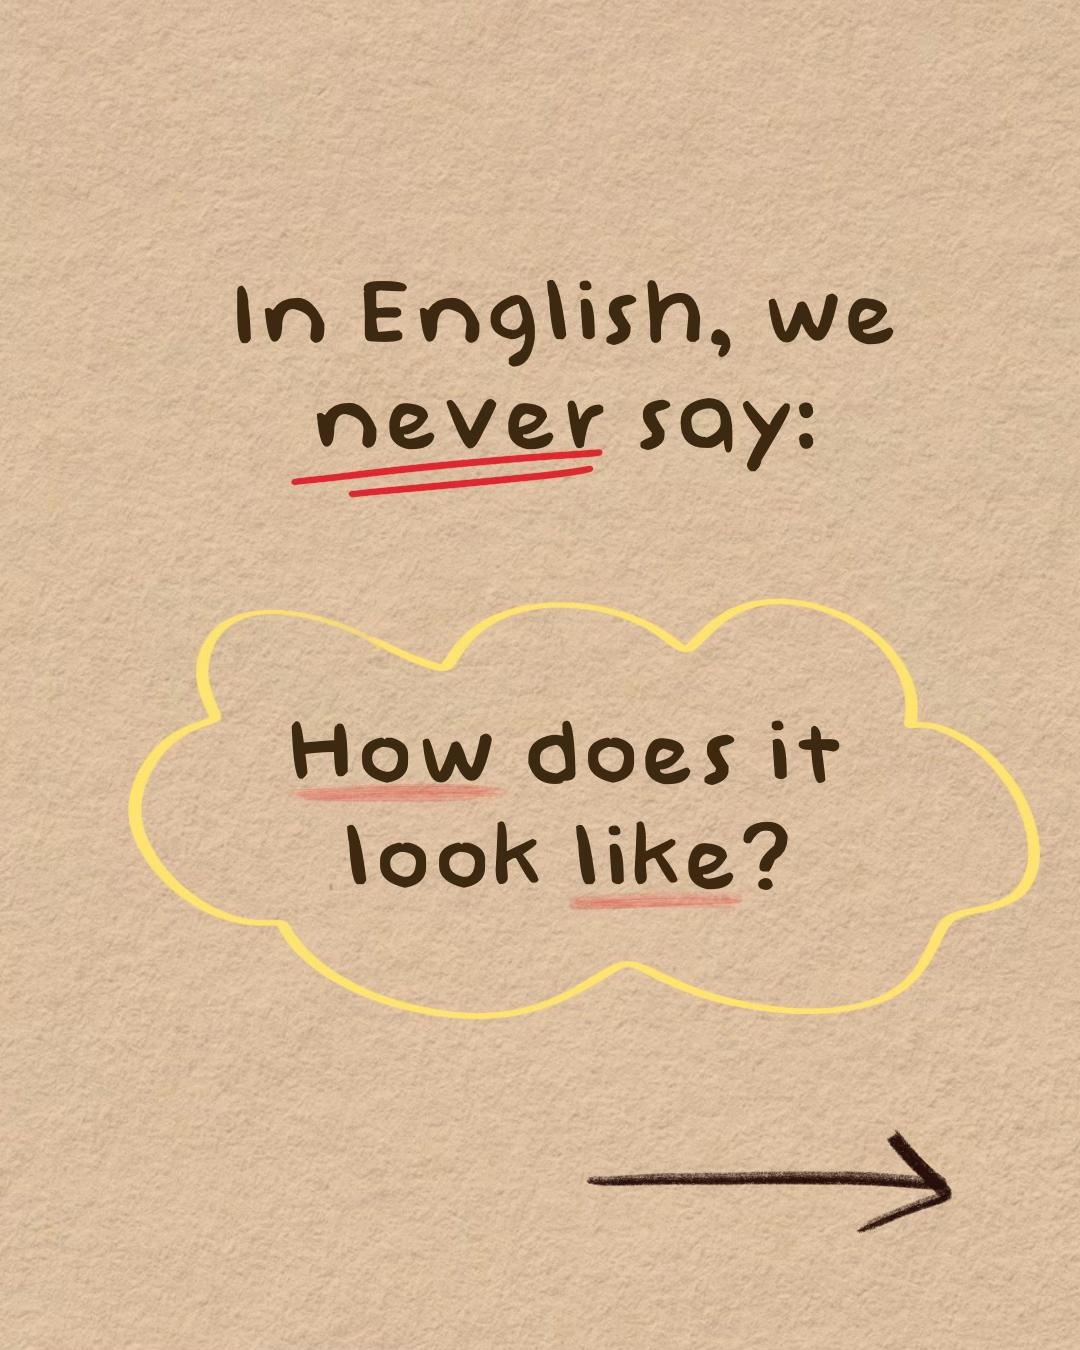 In English, we
never say:
How does it
look like?